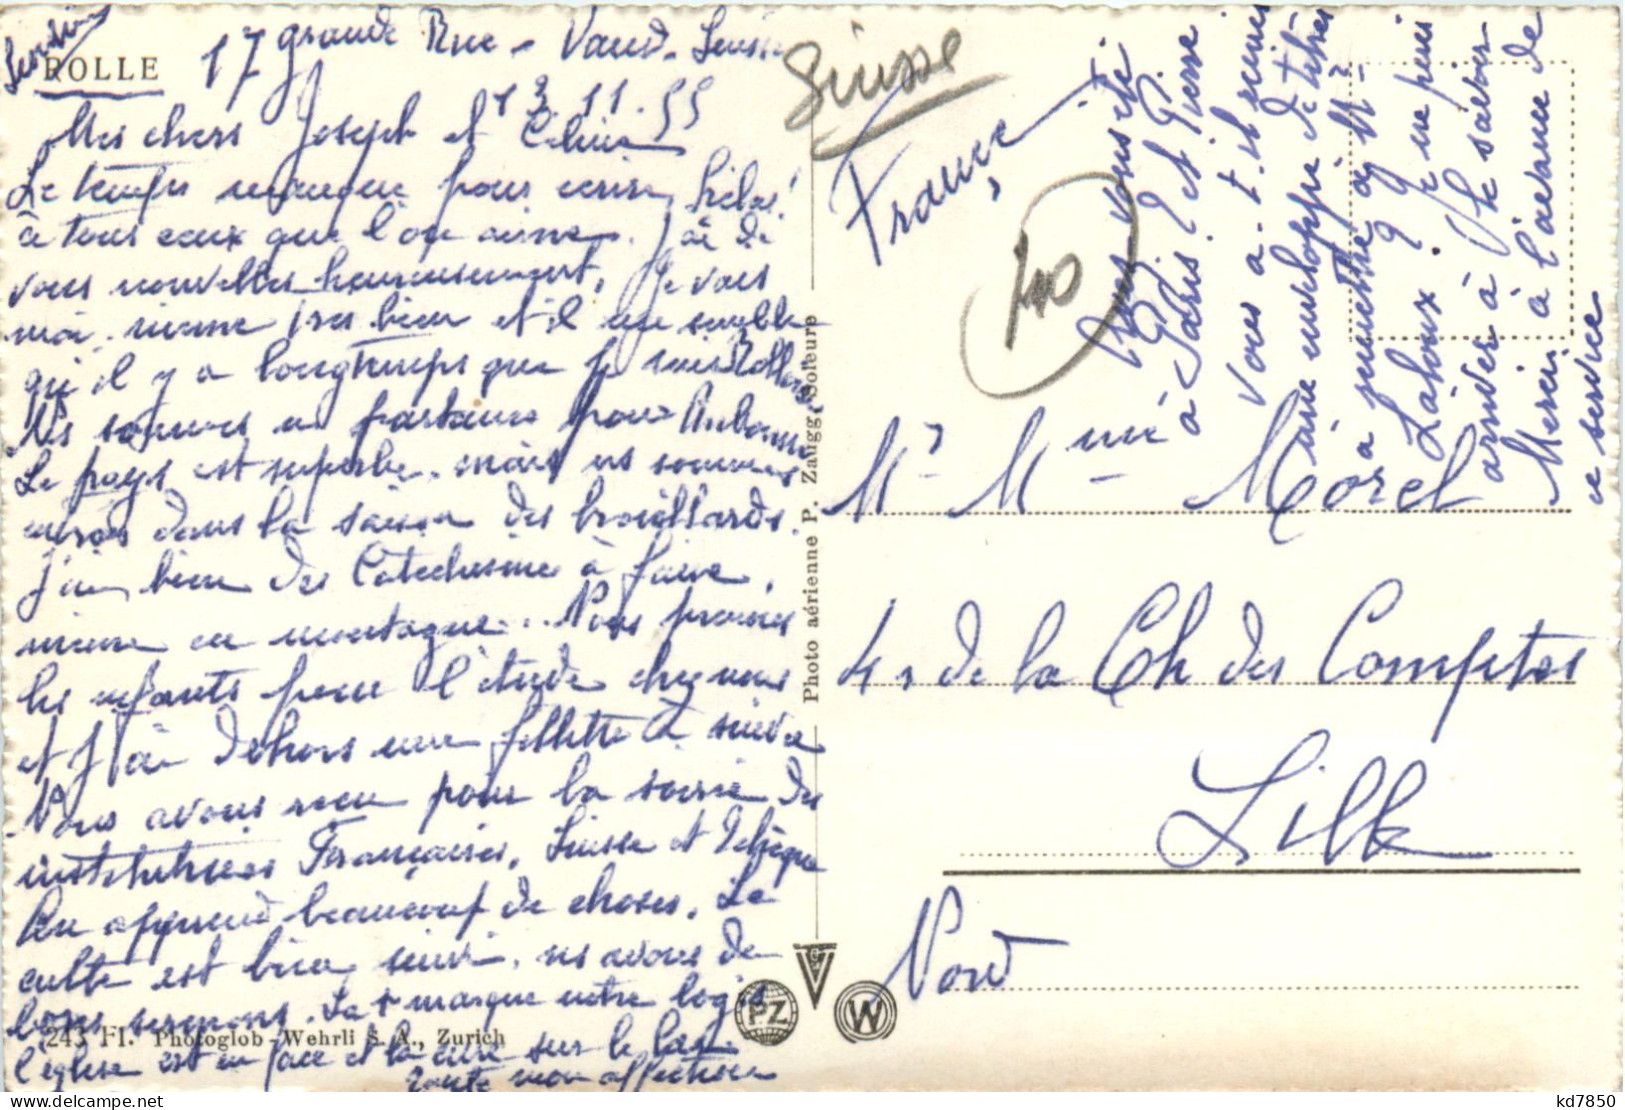 ROLLE
17 grande Rue - Vaud - Suisse
13.11.55
Mes chers Joseph et
Le temps manque pour écrire hélas!
à tous ceux que l'on aime. J'ai de
vous nouvelles heureusement. Je vais
moi même très bien et il me semble
qu'il y a longtemps que je suis Rolle
Ns sommes en partance pour
Le pays est superbe, mais ns sommes
dans la saison des brouillards.
J'ai bien des Catéchismes à faire,
même en montagne... Nous prenons
les enfants pour l'étude chez nous
et j'ai dehors une fillette à suivre
Nous avons reçu pour la soirée des
institutrices Françaises, Suisse et Belgique
On apprend beaucoup de choses. Le
culte est bien suivi, ns avons de
bons sermons. La + marque notre logis
l'église est en face et la cure sur le lac.
toute mon affection
Suisse
France
40
Photo aérienne P. Zaugg, Soleure
Avez vous été
à Paris ? et Pierre
vous a-t-il remis
une enveloppe de titres
a remettre à Mr
Lahoux ? Je ne puis
arriver à le savoir
Merci à l'avance de
ce service
Mr - Mme - Morel
41 r de la Ch des Comptes
Lille
Nord
PZ
W
243 Fl. Photoglob-Wehrli S. A., Zurich
kd7850